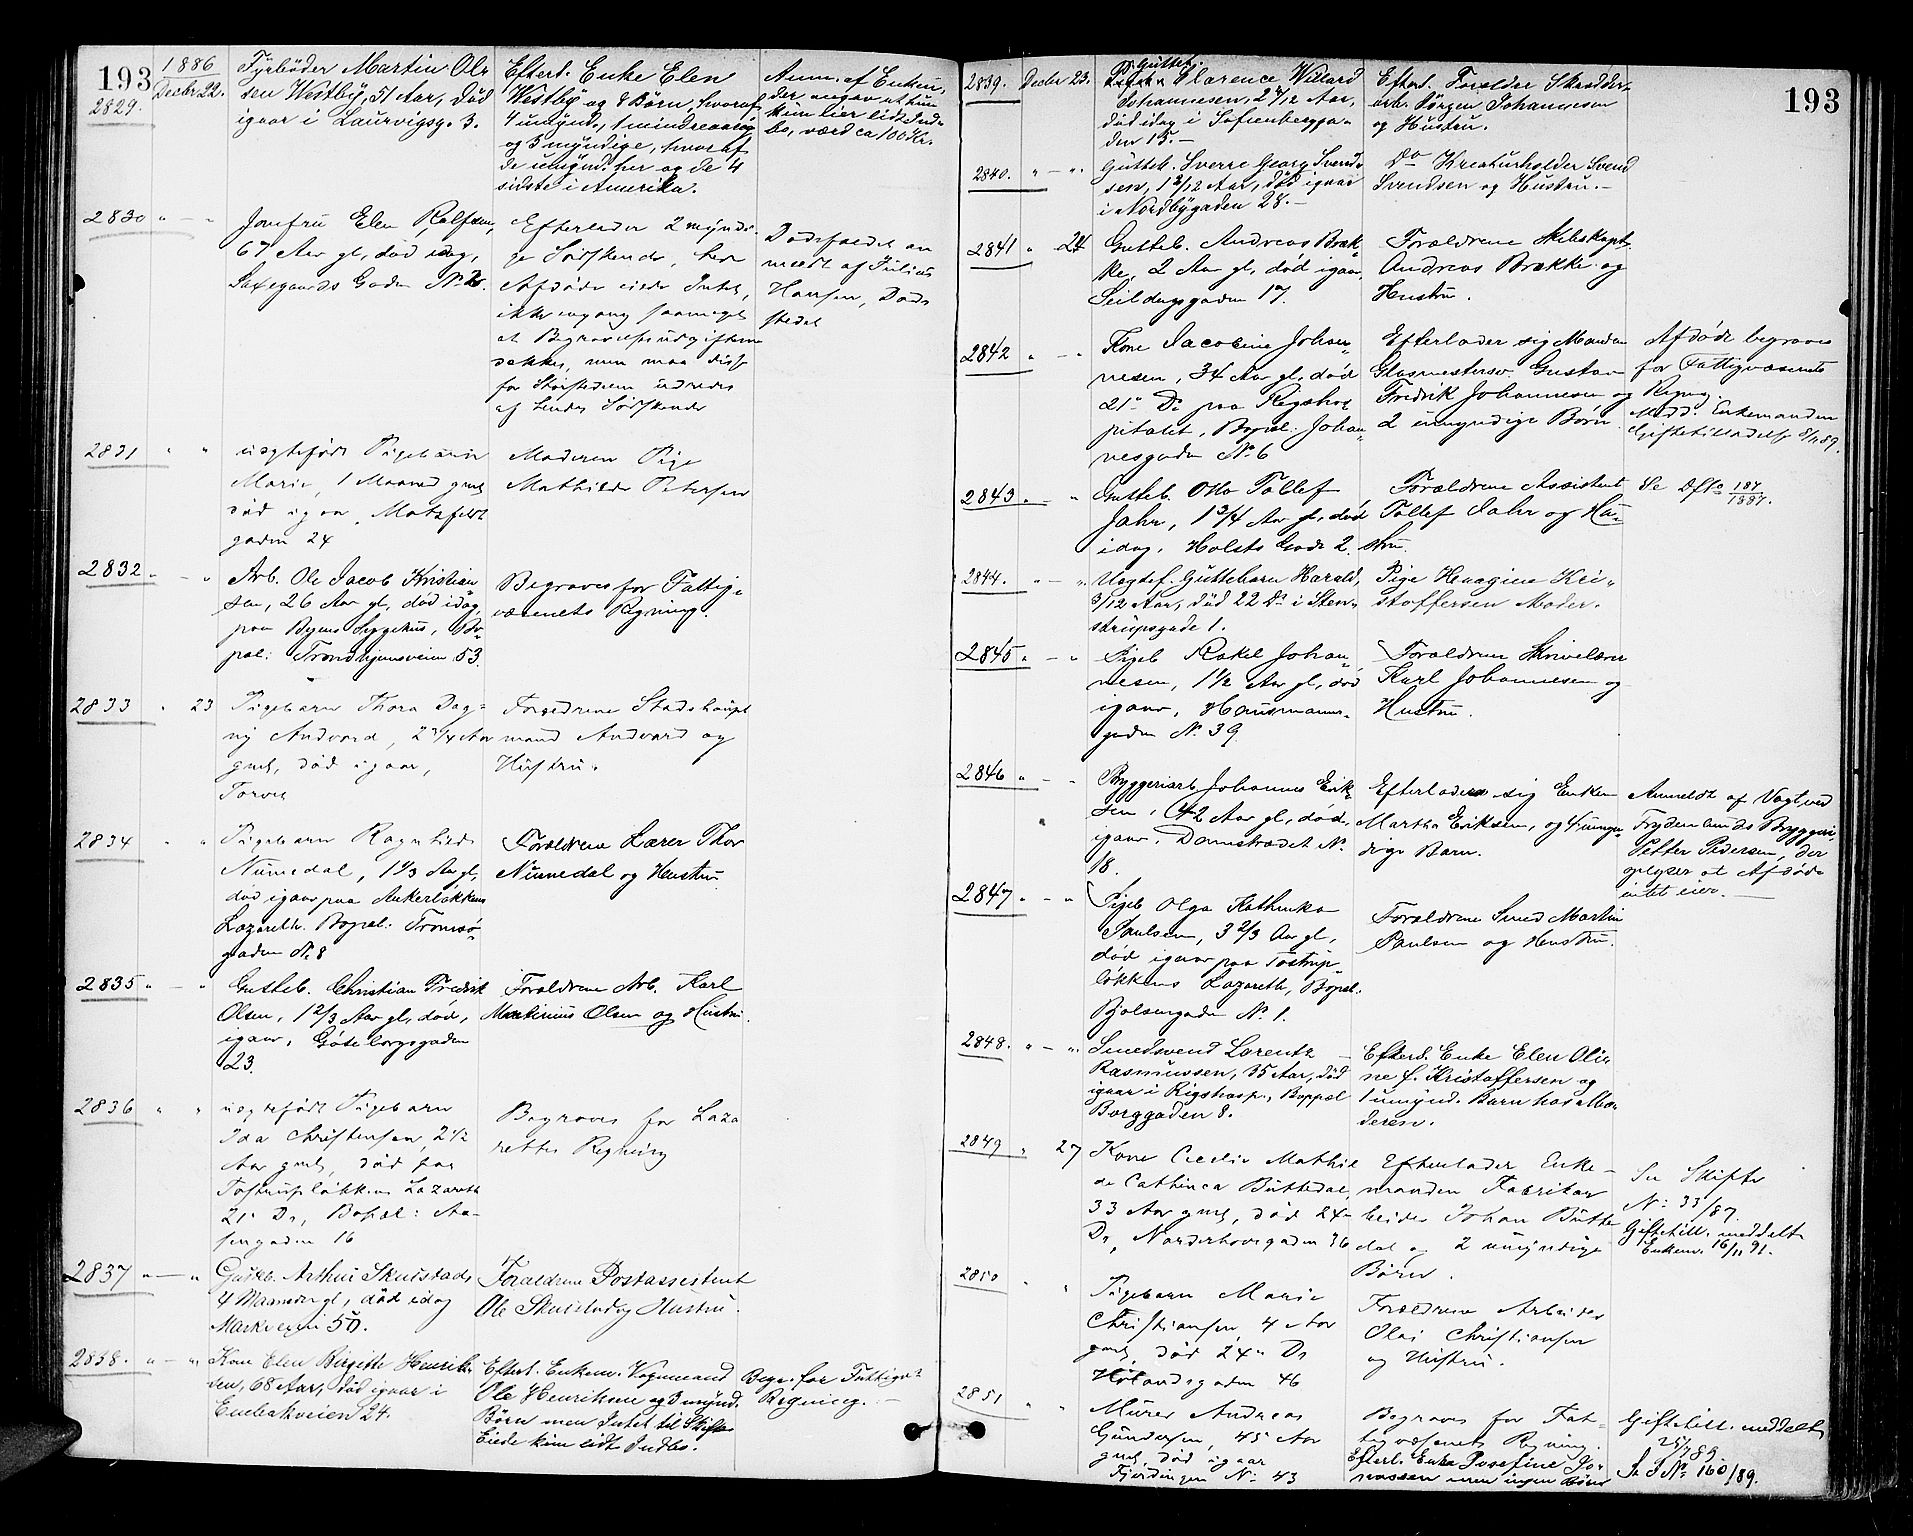 193
1886
2829. Decbr 22.
Fyrbøder Martin Ol-
sen Westby, 51 Aar, død
igaar i Laurvigsg. 3.
Efterl. Enke Elen
Westby og 8 Børn, hvoraf
4 umynd., 1 mindreaarig
og 3 myndige, hvoraf
de umynd. her og de 4
sidste i Amerika.
Anm. af Enken,
der angav at kun
kun eier lidt Ind-
bo, værd ca 100 Kr.
2830 " - "
Jomfru Elen Rolfsen,
67 Aar gl, død idag,
Saxegaards Gaden No
Efterlader 2 myndi-
ge Søskende, her
Afdøde eiede Intet,
ikke engang saameget
at Begravelsesudgifterne
dækkes, men maa disse
for Størstedelen udredes
af hendes Søskende
Dødsfaldet an
meldt af Julius
Hansen, Døds
stedet
2831 " "
uægtefødt Pigebarn
Marie, 1 Maaned gml
død igaar, Motzfeldt
gaden 24
Moderen Pige
Mathilde Petersen
2832 " - "
Arb. Ole Jacob Kristian
sen, 26 Aar gl, død idag,
paa Byens Sygehus, Bo-
pæl: Trondhjemsveien 53.
Begraves for Fattig-
væsenets Regning.
2833 " 23
Pigebarn Thora Dag-
ny Andvord, 2 3/4 Aar
gml, død igaar,
Torvet
Forældrene Stadshaupt
mand Andvord og
Hustru.
2834 " "
Pigebarn Ragnhild
Numedal, 1 1/3 Aar gl,
død igaar paa Ankerløkkens
Lazareth. Bopæl: Tromsø-
gaden No 8
Forældrene Lærer Thor
Numedal og Hustru
2835 " - "
Gutteb. Christian Fredrik
Olsen, 1 2/3 Aar gl, død,
igaar, Göteborgsgaden
23.
Forældrene Arb. Karl
Martinius Olsen og Hustru.
2836 " "
uægtefødt Pigebarn
Ida Christensen, 2 1/2
Aar gml, død paa
Tostrupløkkens Lazareth
21 Ds, Bopæl: Aa-
sengaden 16
Begraves for Laza
rettes Regning
2837 " - "
Gutteb. Arthur Skuistads
4 Maaneder gl, død idag
Markveien 50.
Forældrene Postassistent
Ole Skuistad og Hustru.
2838. " - "
Kone Elen Birgitte Henrik-
sen, 68 Aar, død igaar i
Enebakveien 24.
Efterl. Enkem. Vognmand
Ole Henriksen og 3 mynd.
Børn men Intet til Skifte
Eiede kun lidt Indbo.
Begr. for Fattigv.
Regning. -
193
2839. Decbr 23.
Gutteb.
Clarence Willard
Johannesen, 2 Aar,
død idag i Sofienbergga-
den 15. -
Efterl. Forældre Skrædder-
arb. Jørgen Johannesen
og Hustru.
2840. " - "
Gutteb. Sverre Georg Svend-
sen, 1 3/12 Aar, død igaar
i Nordbygaden 28. -
Do Kreaturholder Svend
Svendsen og Hustru. -
2841 " 24
Gutteb. Andreas Bræk-
ke, 2 Aar gl, død igaar,
Seildugsgaden 17.
Forældrene Skibskapt.
Andreas Brække og
Hustru.
2842 " - "
Kone Jacobine Johan-
nesen, 34 Aar gl, død
21 Ds paa Rigshos-
pitalet, Bopæl: Johan-
nesgaden No 6
Efterlader sig Manden
Glasmestersv. Gustav
Fredrik Johannesen og
2 umyndige Børn
Afdøde begraves
for Fattigvæsenets
Regng.
Medd. Enkemanden
Giftetilladelse 8/1 89.
2843. - "
Gutteb. Otto Tollef
Jahr, 1 3/4 Aar gl, død
idag, Holsts Gade 2.
Forældrene Assistent
Tollef Jahr og Hu-
stru.
Se Dfl. 187/1887.
2844. " - "
Uægtef. Guttebarn Harald,
3/12 Aar, død 22 Ds i Sten-
strupsgade 1.
Pige Henagine Kri-
stoffersen Moder.
2845 " - "
Pigeb Rakel Johan-
nesen, 1 1/2 Aar gl, død
igaar, Hausmanns-
gaden No 39
Forældrene Skrivelærer
Karl Johannesen og
Hustru.
2846 " - "
Bryggeriarb Johannes Erik-
sen, 42 Aar gl, død
igaar, Damstrædet No
18.
Efterlader sig Enken
Martha Eriksen, og 4 umyn-
dige Børn.
Anmeldt af Vagt ved
Frydenlunds Bryggeri,
Petter Pedersen, der
oplyser at Afdøde
intet eier. -
2847 " - "
Pigeb Olga Kathinka
Paulsen, 3 2/3 Aar gl,
død igaar paa Tostrup
løkkens Lazareth, Bopæl:
Bjølsengaden No 1.
Forældrene Smed Martin
Paulsen og Hustru.
2848. " - "
Smedsvend Lorentz -
Rasmussen, 35 Aar, død
igaar i Rigshosp., Boppæl
Borggaden 8.
Efterl. Enke Elen Oli-
ne f. Kristoffersen og
1 umynd. Barn hos Mo-
deren.
2849 " 27
Kone Cecilie Mathil
de Cathinca Büttedal,
33 Aar gml, død 24
Ds, Norderhovsgaden 36
Efterlader Enke-
manden Fabrikar
beider Johan Bütte
dal og 2 umyndige
Børn.
Se Skifte
No 33/87.
Giftetill. meddelt
Enkem. 16/11 91.
2850 "
Pigebarn Marie
Christiansen, 4 Aar
gml, død 24 Ds
Hølandsgaden 46
Forældrene Arbeider
Olai Christiansen
og Hustru.
2851 " "
Murer Andreas
Gundersen, 45 Aar
gml, død igaar
Fjerdingen No 43
Begraves for Fat-
tigvæsenets Regning.
Efterl. Enke Josefine Jo-
nassen men ingen Børn
Giftetill. meddelt
25/7 89
Se S No 160/89.